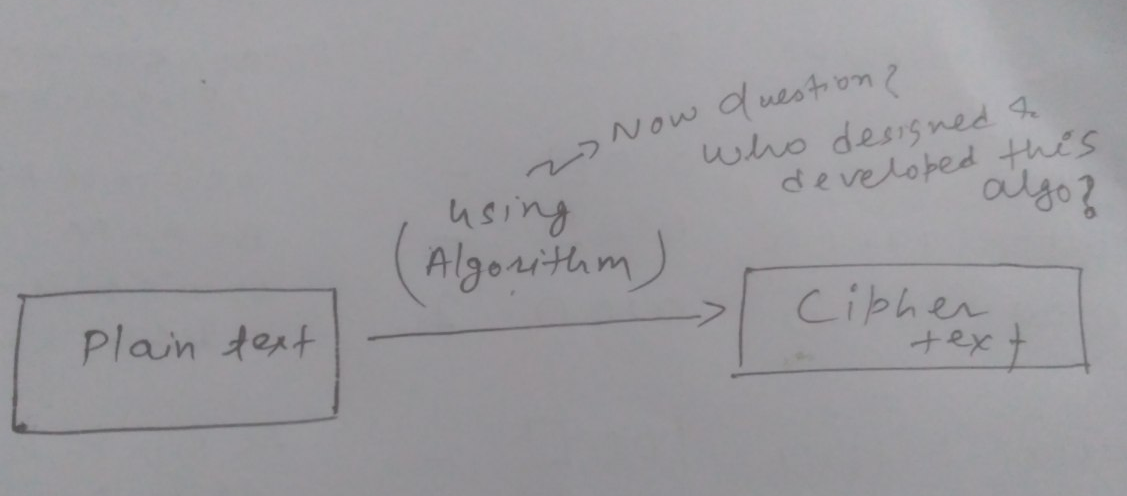 Now question?
who designed &
developed this
algo?
using
(Algorithm)
Plain text
Cipher
text